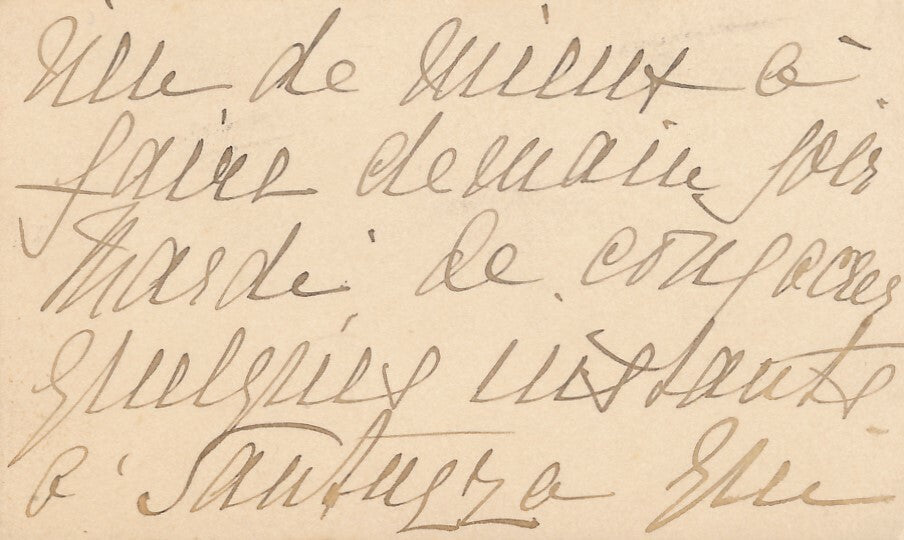 rien de mieux à
faire demain soir
Mardi de consacrer
quelques instants
à Santuzza qui